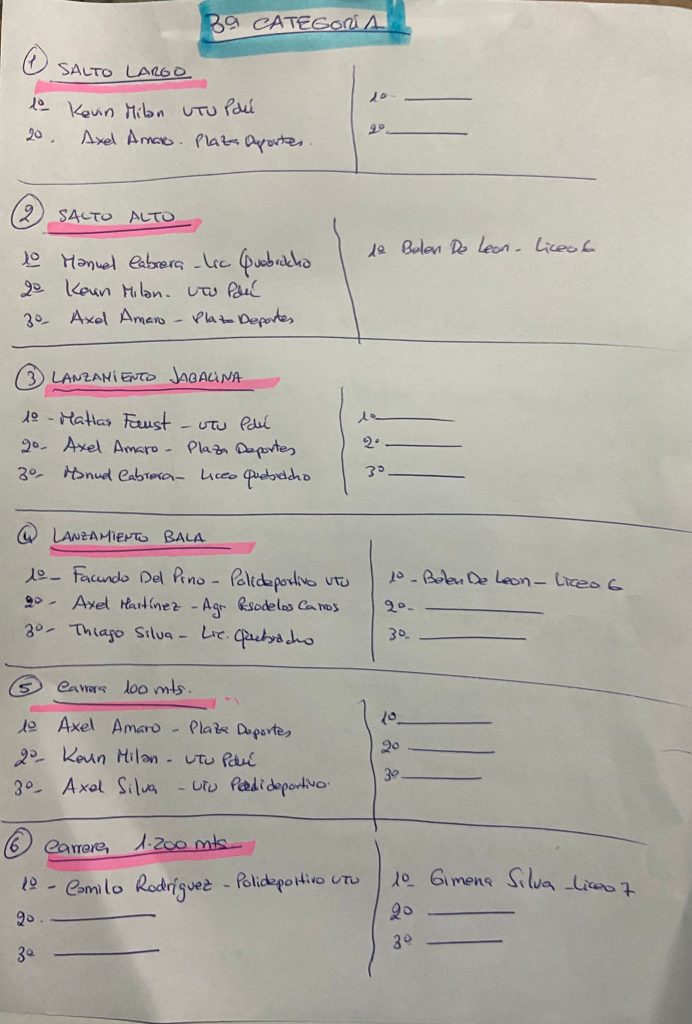 3ª CATEGORÍA
① SALTO LARGO
1º Kevin Milan UTU Pdú
2º. Axel Amaro. Plaza Deportes.
1º
2º
② SALTO ALTO
1º Manuel Cabrera - Lic Quebracho
2º Kevin Milan. UTU Pdú
3º- Axel Amaro - Plaza Deportes
1º Belen De Leon - Liceo 6
③ LANZAMIENTO JABALINA
1º - Matias Faust - UTU Pdú
2º- Axel Amaro - Plaza Deportes
3º- Manuel Cabrera - Liceo Quebracho
1º
2º
3º
④ LANZAMIENTO BALA
1º - Facundo Del Pino - Polideportivo UTU
2º - Axel Martínez - Agr
3º - Thiago Silva - Lic. Quebracho
1º - Belen De Leon - Liceo 6
2º-
3º-
⑤ Carrera 100 mts.
1º Axel Amaro - Plaza Deportes
2º- Kevin Milan - UTU Pdú
3º- Axel Silva - UTU
1º
2º
3º
⑥ Carrera 1.200 mts
1º - Camilo Rodríguez - Polideportivo UTU
2º.
3º
1º Gimena Silva - Liceo 7
2º
3º